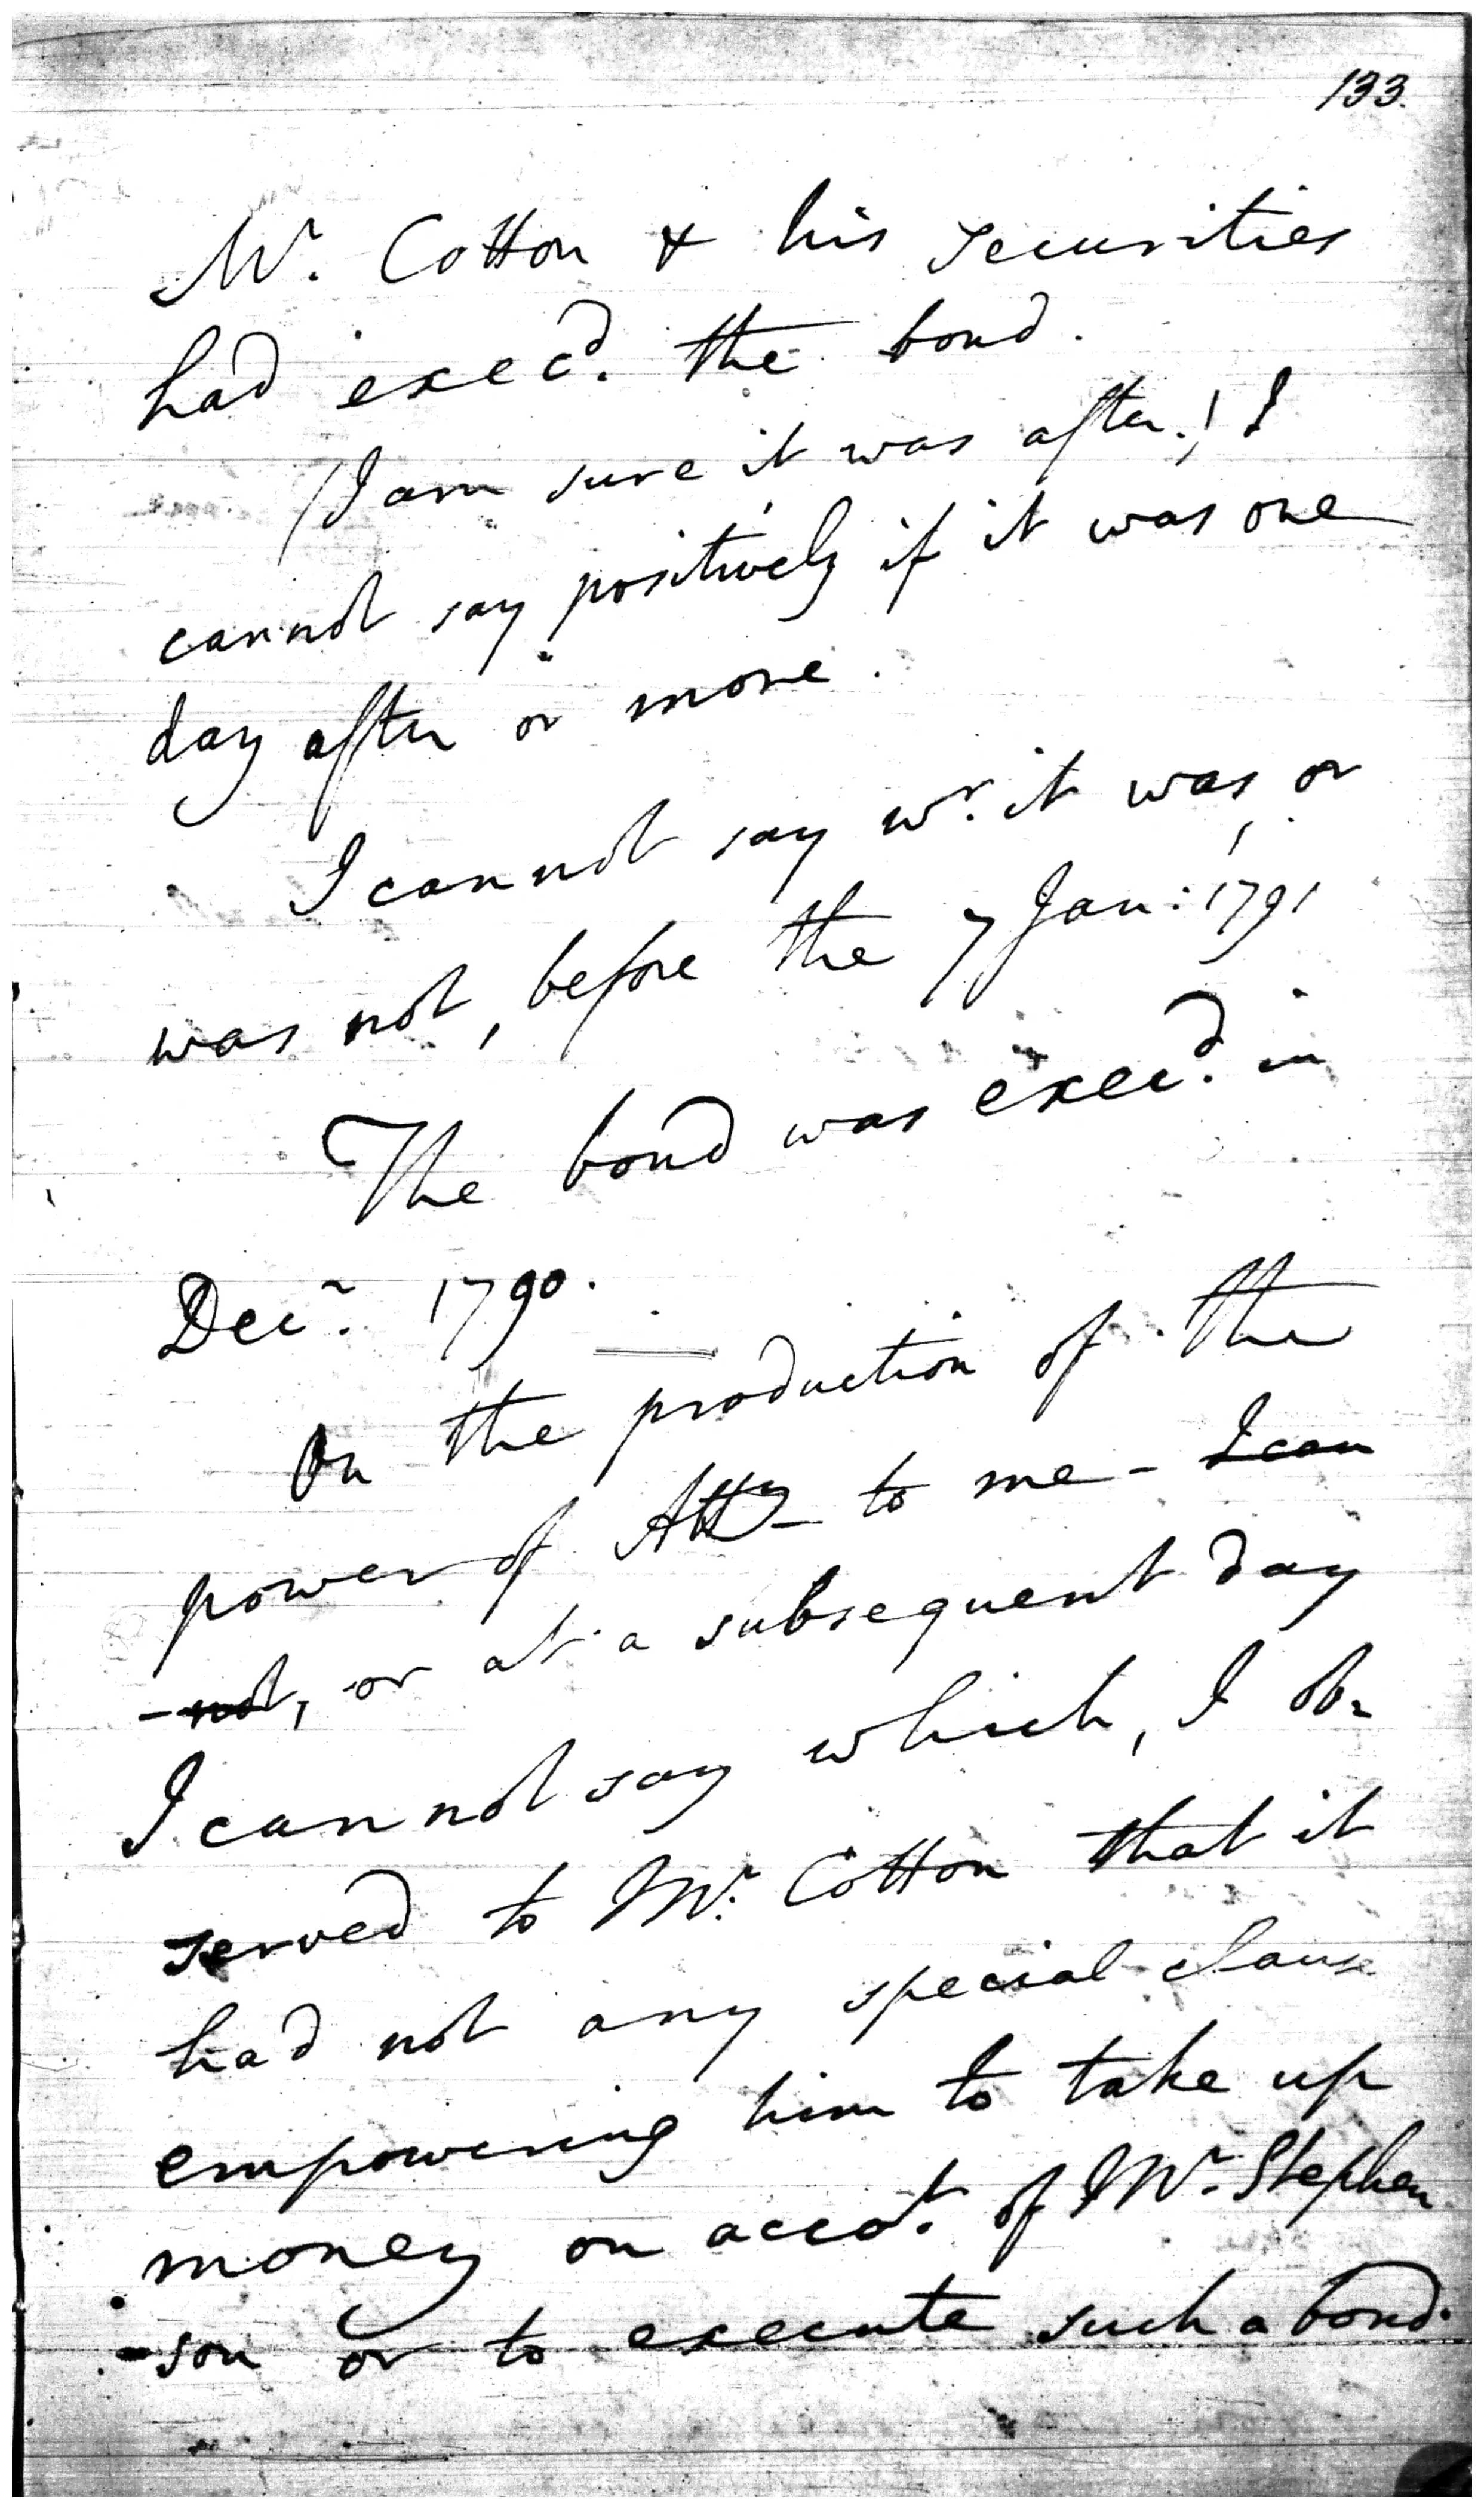 133.
Mr. Cotton & his securities
had execd. the bond.
I am sure it was after.! I
cannot say positively if it was one
day after or more.
I cannot say wr. it was, or
was not, before the 7 Jan: 1791
The bond was execd. in
Decr. 1790.
On the production of the
power of Atty to me - I can
-not, or at a subsequent day
I cannot say which, I ob-
served to Mr. Cotton that it
had not any special clause
empowering him to take up
money on accot. of Mr. Stephen
-son or to execute such a bond.